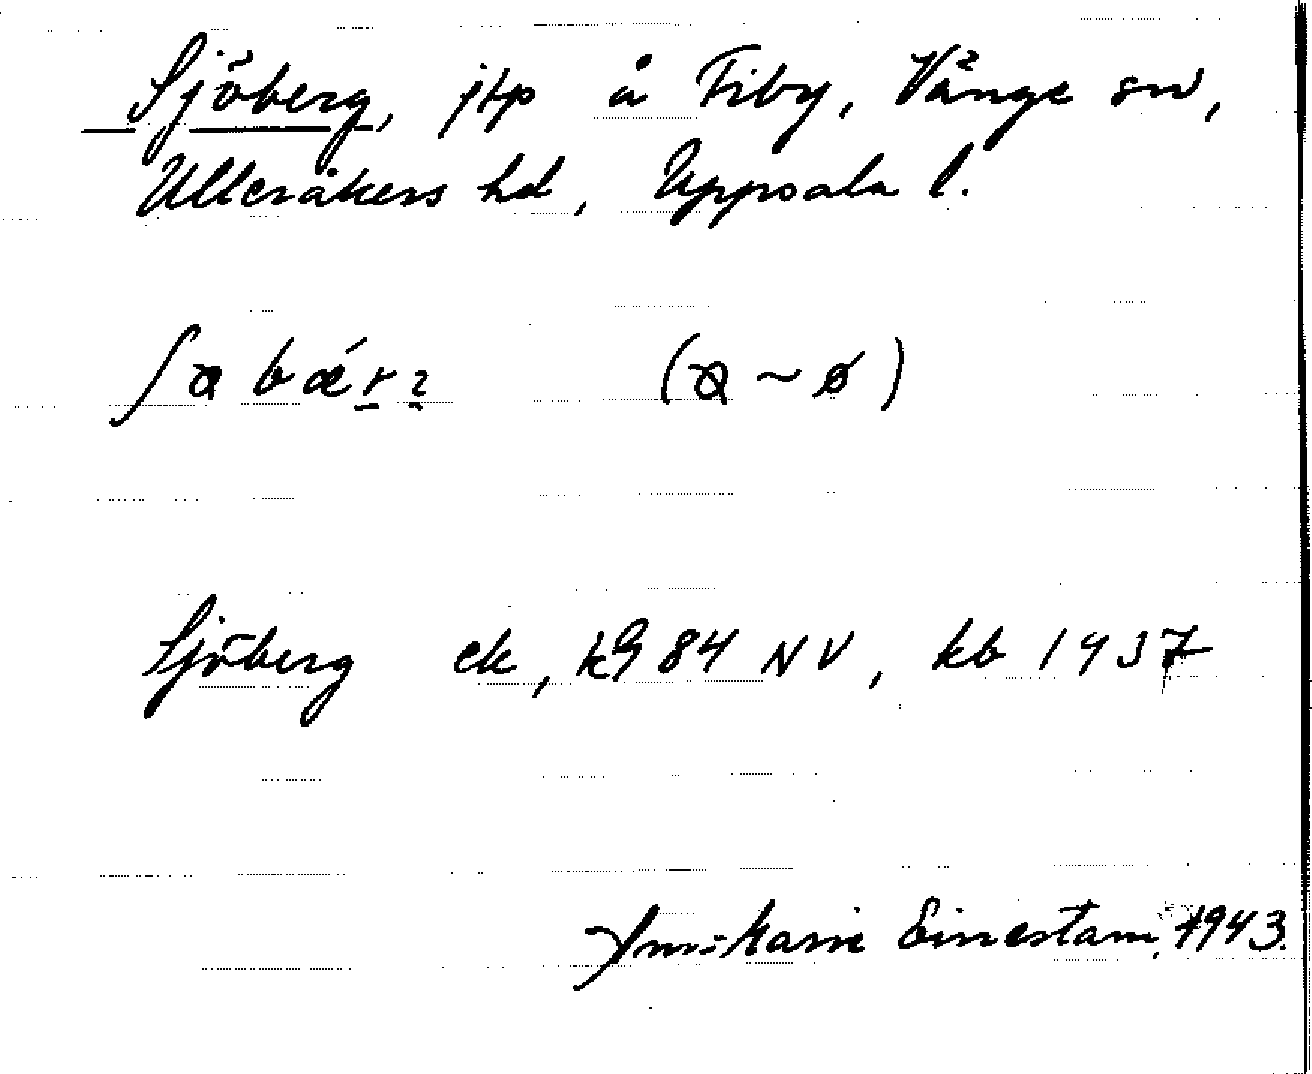 Sjöberg, jtp å Fiby, Vänge sn,
Ulleråkers hd, Uppsala l.
Sjöberg ek, k9 84 NV, kb 1937
Ann-Marie Einestam, 1943.